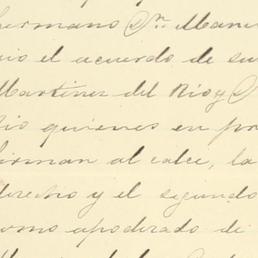 hermano Sr. Man
el acuerdo de su
Martinez del Rio y
quienes en pr
firman al calce, la
derecho y el segundo
como apoderado de